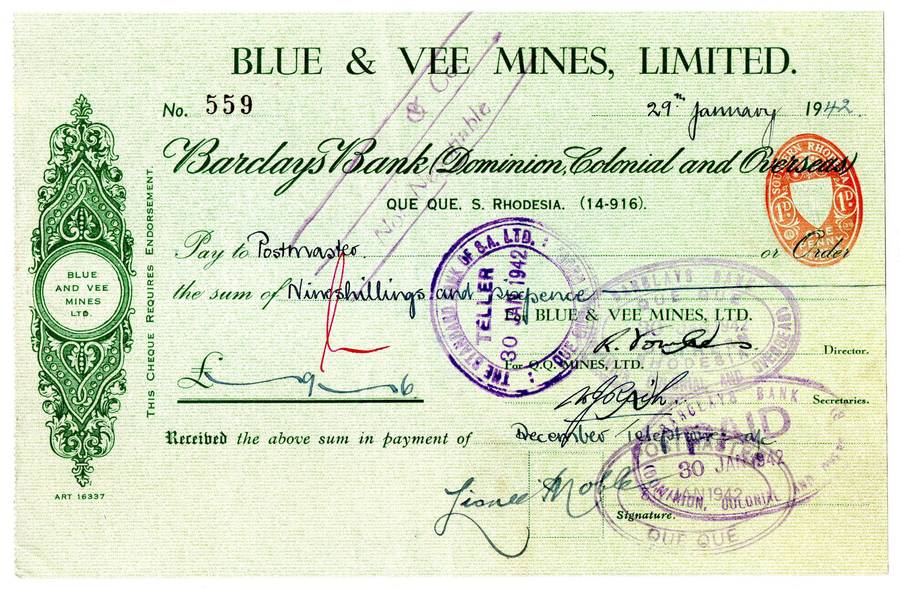 BLUE & VEE MINES, LIMITED.
No. 559
29th January 1942.
Barclays Bank (Dominion, Colonial and Overseas)
QUE QUE, S. RHODESIA. (14-916).
SOUTHERN RHODESIA
1D. 1D.
ONE PENNY
& Co
Not Negotiable
Pay to Postmaster. or Order
the sum of Nine shillings and sixpence
For BLUE & VEE MINES, LTD.
Director.
For Q.Q. MINES, LTD.
Secretaries.
£ 9 6.
Received the above sum in payment of December Telephone a/c
Signature.
THE STANDARD BANK OF S.A. LTD.
TELLER
30 JAN 1942
QUE QUE
BARCLAYS BANK
QUE QUE
RHODESIA
BARCLAYS BANK
PAID
30 JAN 1942
(DOMINION, COLONIAL AND
JAN 1942
QUE QUE
BLUE
AND VEE
MINES
LTD.
THIS CHEQUE REQUIRES ENDORSEMENT.
ART 16337